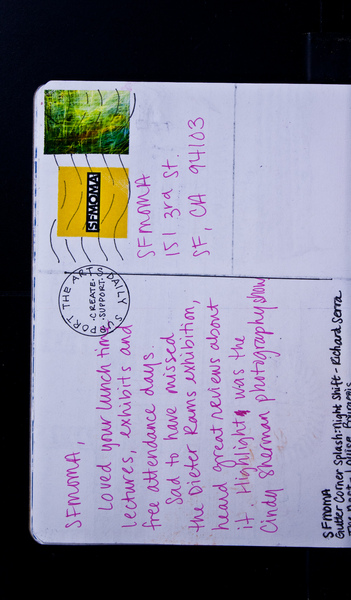 SFMOMA,
Loved your lunch time
lectures, exhibits and
free attendance days.
Sad to have missed
the Dieter Rams exhibition,
heard great reviews about
it. Highlight was the
Cindy Sherman photography show
SFMOMA
151 3rd St.
SF, CA 94103
SFMOMA
PORT THE ARTS DAILY SUP
·CREATE·
·SUPPORT·
SFMOMA
Gutter Corner Splash: Night Shift - Richard Serra